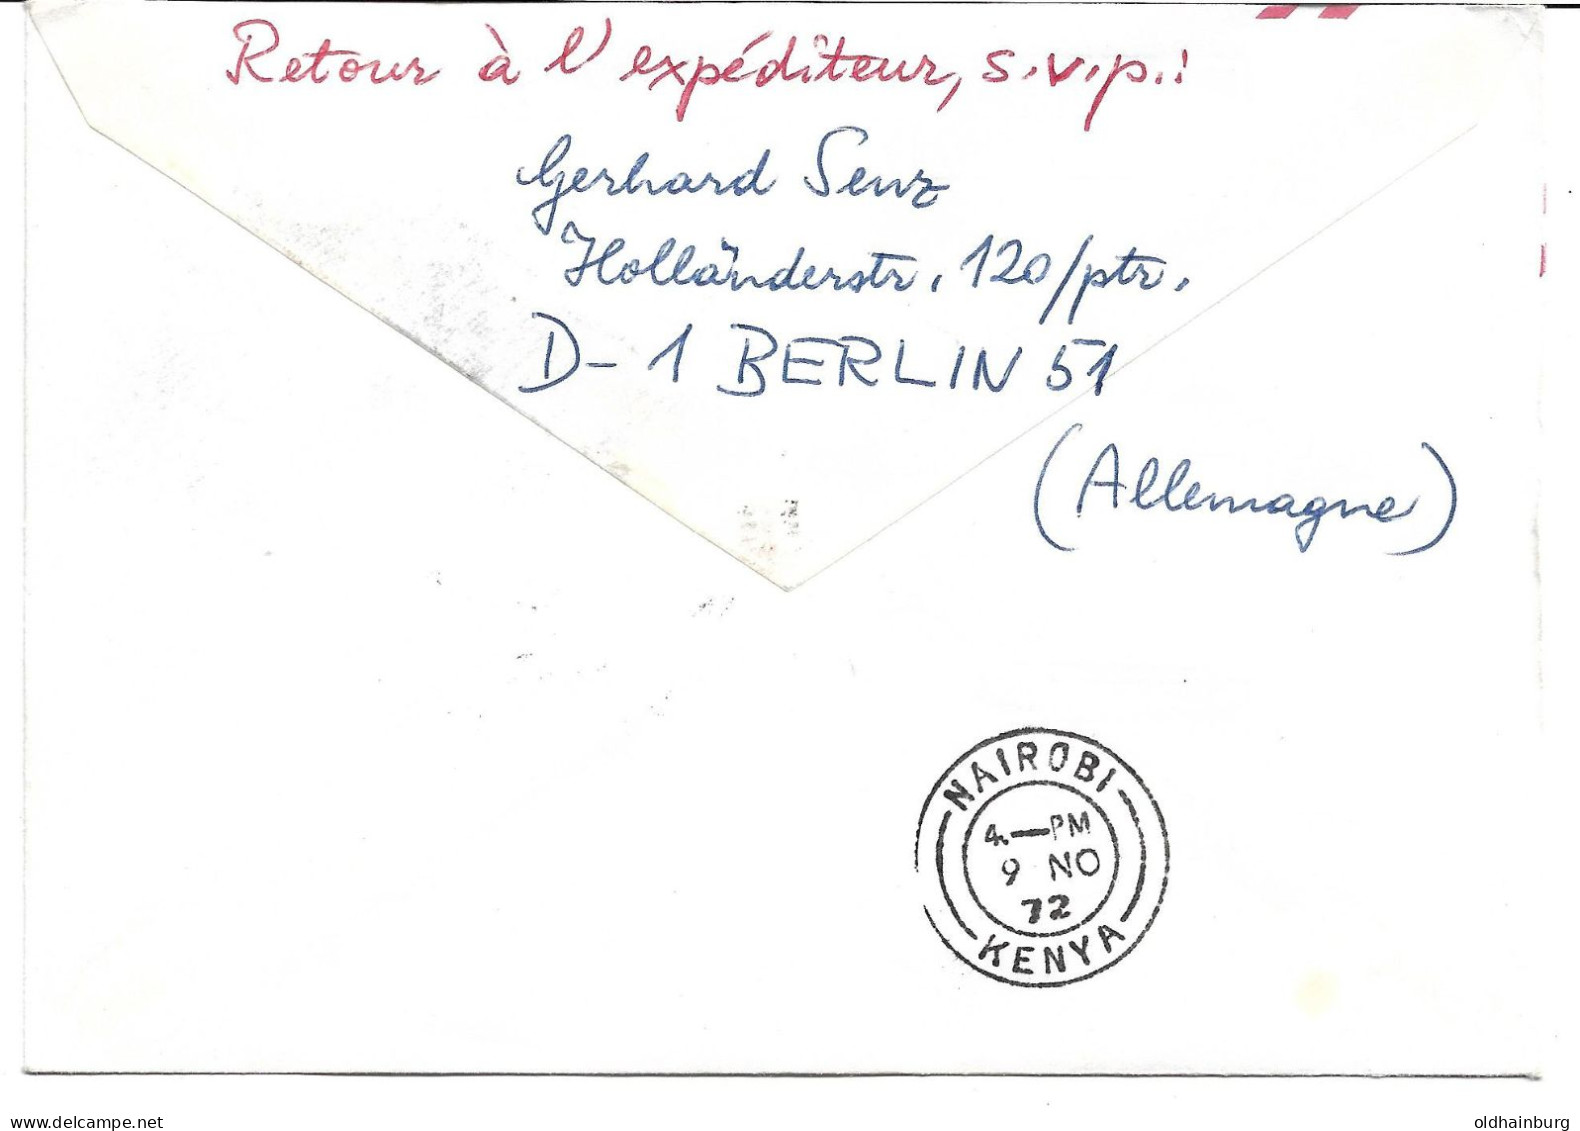 Retour à l'expéditeur, s.v.p.:
Gerhard Senz
Holländerstr. 120/ptr.
D-1 BERLIN 51
(Allemagne)
NAIROBI
4.—PM
9 NO
72
KENYA
www.delcampe.net
oldhainburg